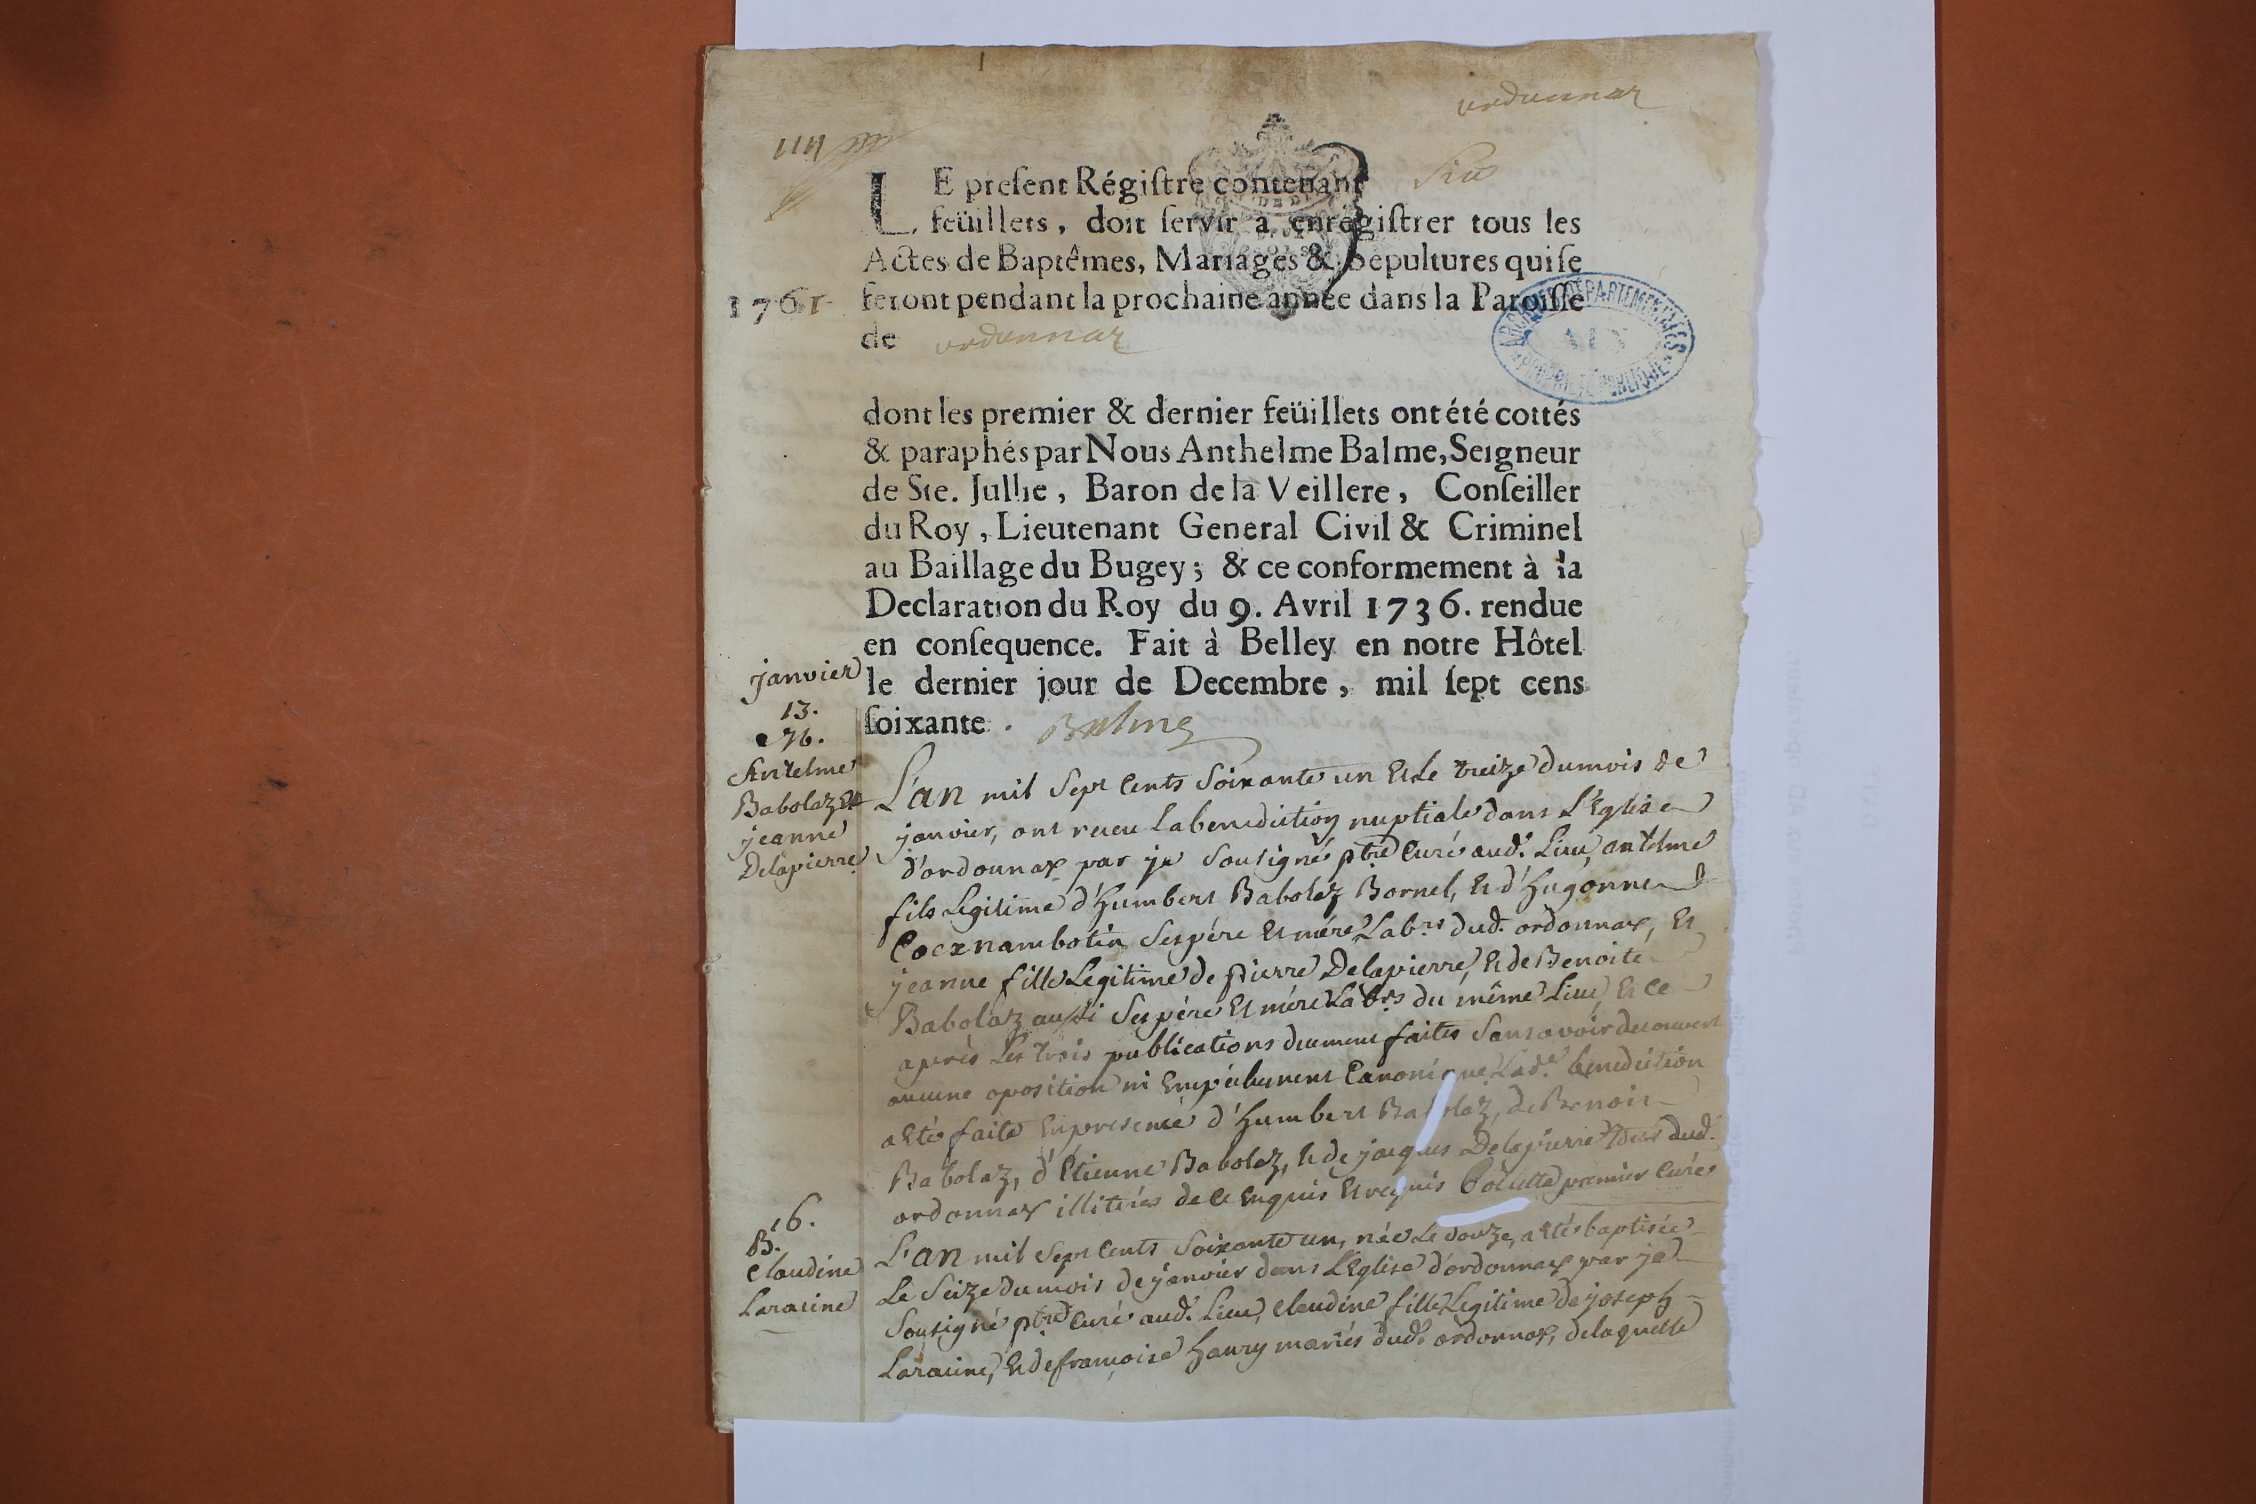 ordonnax
LE presenr Régistre contenant six
feüillets, doit servir à enrégistrer tous les
Actes de Baptêmes, Mariages & Sepultures qui se
1761 feront pendant la prochaine année dans la Paroisse
de ordonnax
ARCHIVES DÉPARTEMENTALES
AIN
PROPRIÉTÉ PUBLIQUE
dont les premier & dernier feüillets ont été cottés
& paraphés par Nous Anthelme Balme, Seigneur
de Ste. Julhe, Baron de la Veillere, Conseiller
du Roy, Lieutenant General Civil & Criminel
au Baillage du Bugey; & ce conformement à la
Declaration du Roy du 9. Avril 1736. rendue
en consequence. Fait à Belley en notre Hôtel
le dernier jour de Decembre, mil sept cens
soixante. Balme
janvier
13.
M.
Antelme
Babolaz Et
jeanne
Delapierre
L'an mil Sept Cents Soixante un Et Le treize du mois de
janvier, ont receu La benediction nuptiale dans L'Eglise
d'ordonnax par je Sousigné ptre Curé aud. Lieu, antelme
fils Legitime d'humbert Babolaz Bornel, Et d'hugonne
Cocznambotin Ses pére Et mére Labrs dud. ordonnax, Et
jeanne fille Legitime de pierre Delapierre, Et de Benoite
Babolaz aussi Ses pére Et mére Labrs du même Lieu, Et ce
après Les trois publications duement faites Sans avoir decouvert
aucune oposition ni Empéchement Canonique. Lad. benediction
a Eté faite En presence d'humbert Babolaz, de Benoit
Babolaz, d'Etienne Babolaz, Et de jacques Delapierre tous dud.
ordonnax illiterés de ce Enquis Et requis premier Curé
16.
B.
Claudine
Laracine
L'an mil Sept Cents Soixante un, née Le douze, a Eté baptisée
Le Seize du mois de janvier dans L'Eglise d'ordonnax par je
Sousigné ptre Curé aud. Lieu, Claudine fille Legitime de joseph
Laracine, Et de françoise haury mariés dud. ordonnax, de laquelle